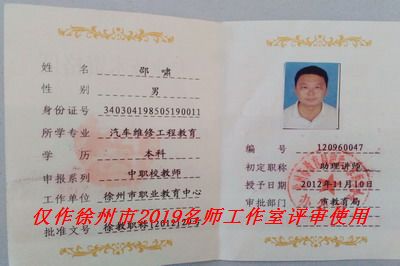 姓名 邵啸
性别 男
身份证号 340304198505190011
所学专业 汽车维修工程教育
学历 本科
申报系列 中职校教师
工作单位 徐州市职业教育中心
批准文号 徐教职称[2012]29号
编号 120960047
初定职称 助理讲师
授予日期 2012年11月10日
审批部门 市教育局
仅作徐州市2019名师工作室评审使用